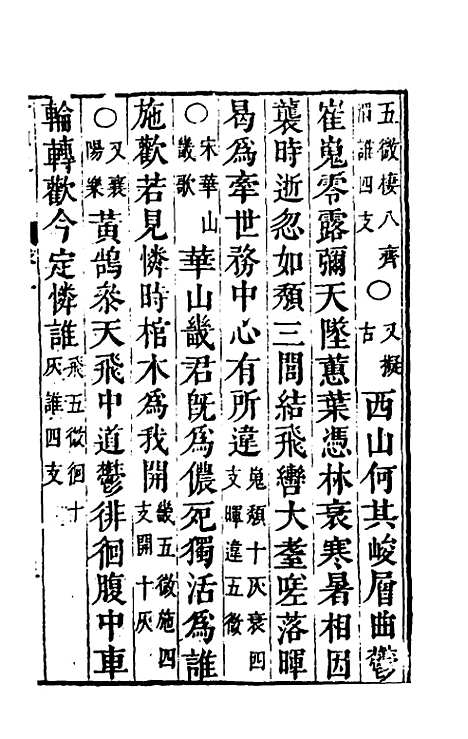 五微棲八齊○又擬
湄誰四支古西山何其峻層曲鬱
崔嵬零露彌天墜蕙葉憑林衰寒暑相因
襲時逝忽如頹三閭結飛轡大耋嗟落暉
曷為牽世務中心有所違嵬頹十灰衰四支暉違五微
○宋華山畿歌華山畿君旣為儂死獨活為誰
施歡若見憐時棺木為我開畿五微施四支開十灰
○又襄陽樂黃鵠參天飛中道鬱徘徊腹中車
輪轉歡今定憐誰飛五微徊十灰誰四支